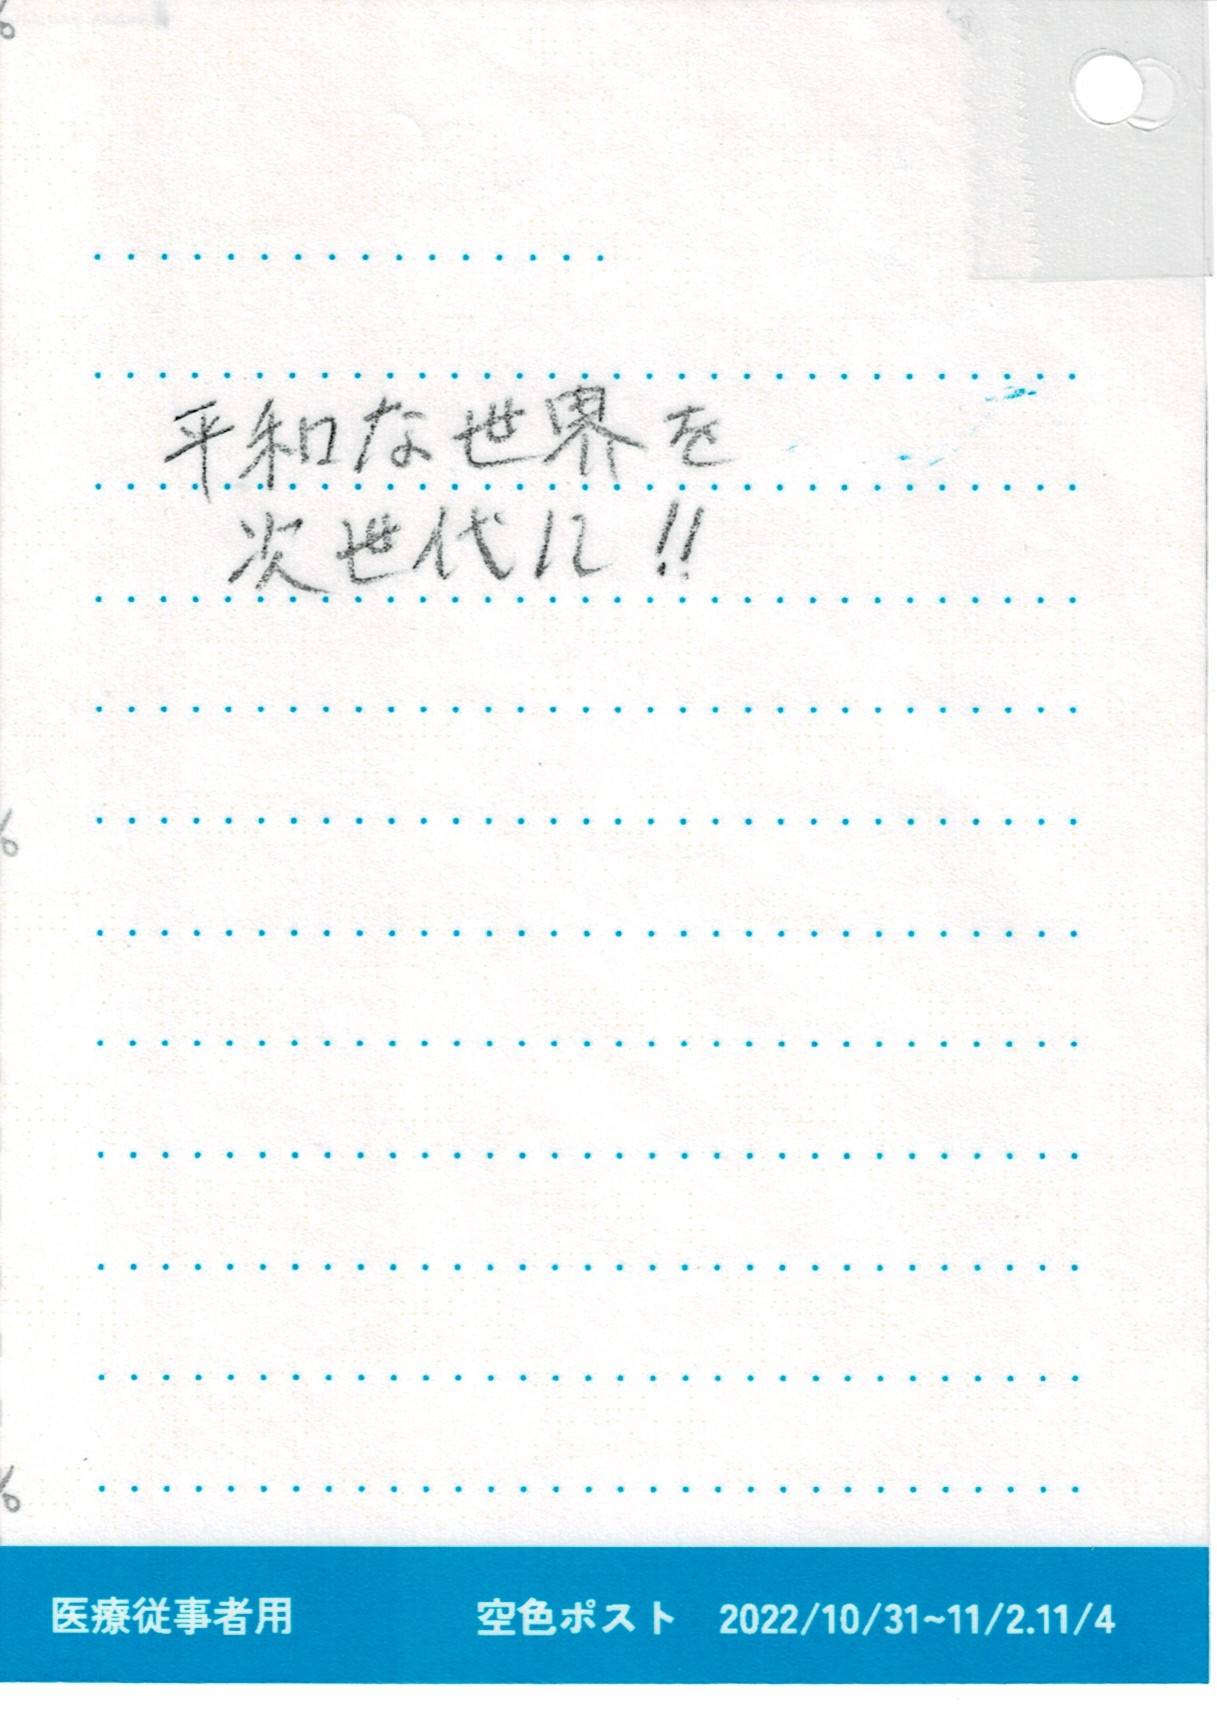 平和な世界を
次世代に!!
医療従事者用 空色ポスト 2022/10/31~11/2.11/4